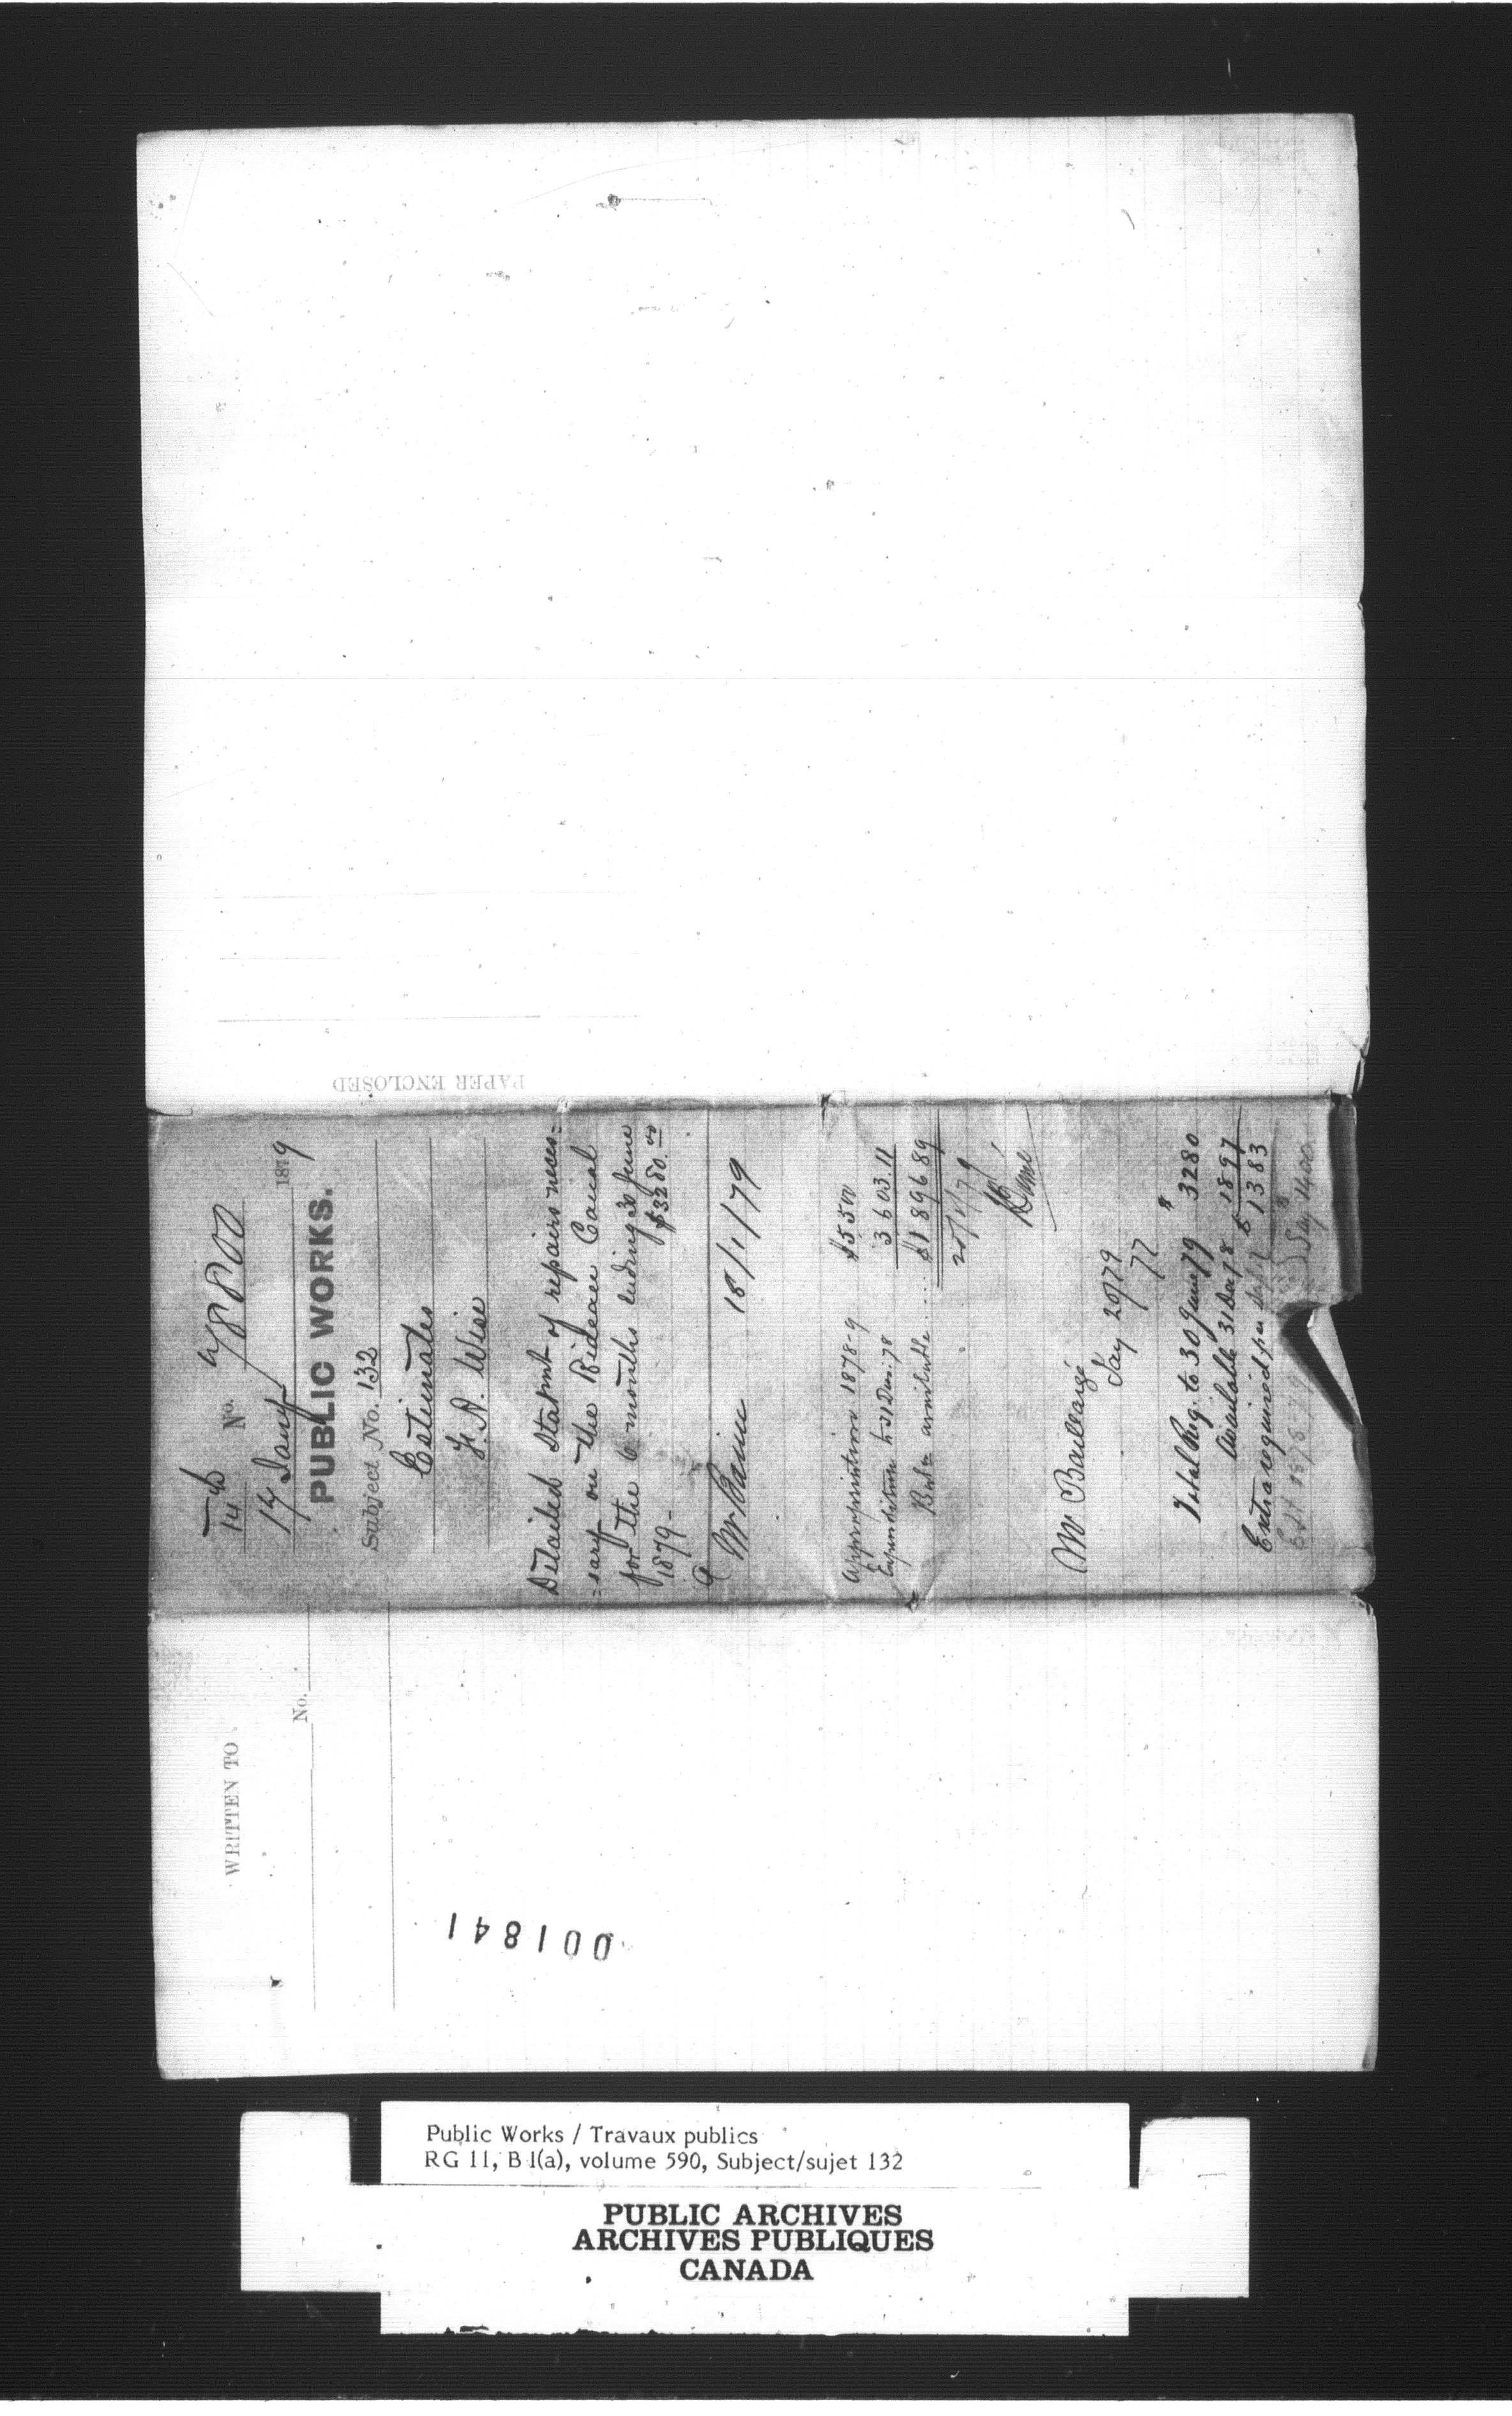 14th No. 78800
17 Jany 1879
PUBLIC WORKS.
Subject No. 132
Estimates
F. A. Wise
Detailed Statmt of repairs neces=
=sary on the Rideau Canal
for the 6 months ending 30 June
1879 – $3280.00
Mr Baine 18/1/79
Appropriation 1878-9 $5500
Expenditure to 31 Dec. 78 3603.11
Bal. available .... $1896 89
20/1/79
Mr Baillargé
Jay 20/79
Total Req. to 30 June 79 $ 3280
Available 31 Dec 78 1897
Extra required $ 1383
Say $ 1400
PAPER ENCLOSED
WRITTEN TO
No.
001841
Public Works / Travaux publics
RG 11, B 1(a), volume 590, Subject/sujet 132
PUBLIC ARCHIVES
ARCHIVES PUBLIQUES
CANADA